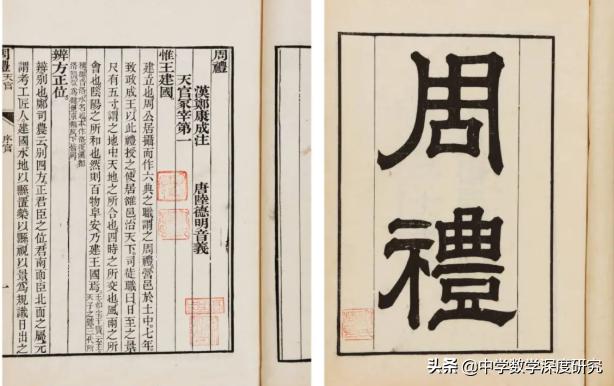 周禮
漢鄭康成注 唐陸德明音義
天官冢宰第一
惟王建國
建立也周公居攝而作六典之職謂之周禮營邑於土中七年
致政成王以此禮授之使居雒邑治天下司徒職曰日至之景
尺有五寸謂之地中天地之所合也四時之所交也風雨之所
會也陰陽之所和也然則百物阜安乃建王國焉
辨方正位
辨別也鄭司農云別四方正君臣之位君南面臣北面之屬元
謂考工匠人建國水地以縣置槷以縣視以景爲規識日出之
周禮
天官
序官
一
周禮
头条 @中学数学深度研究